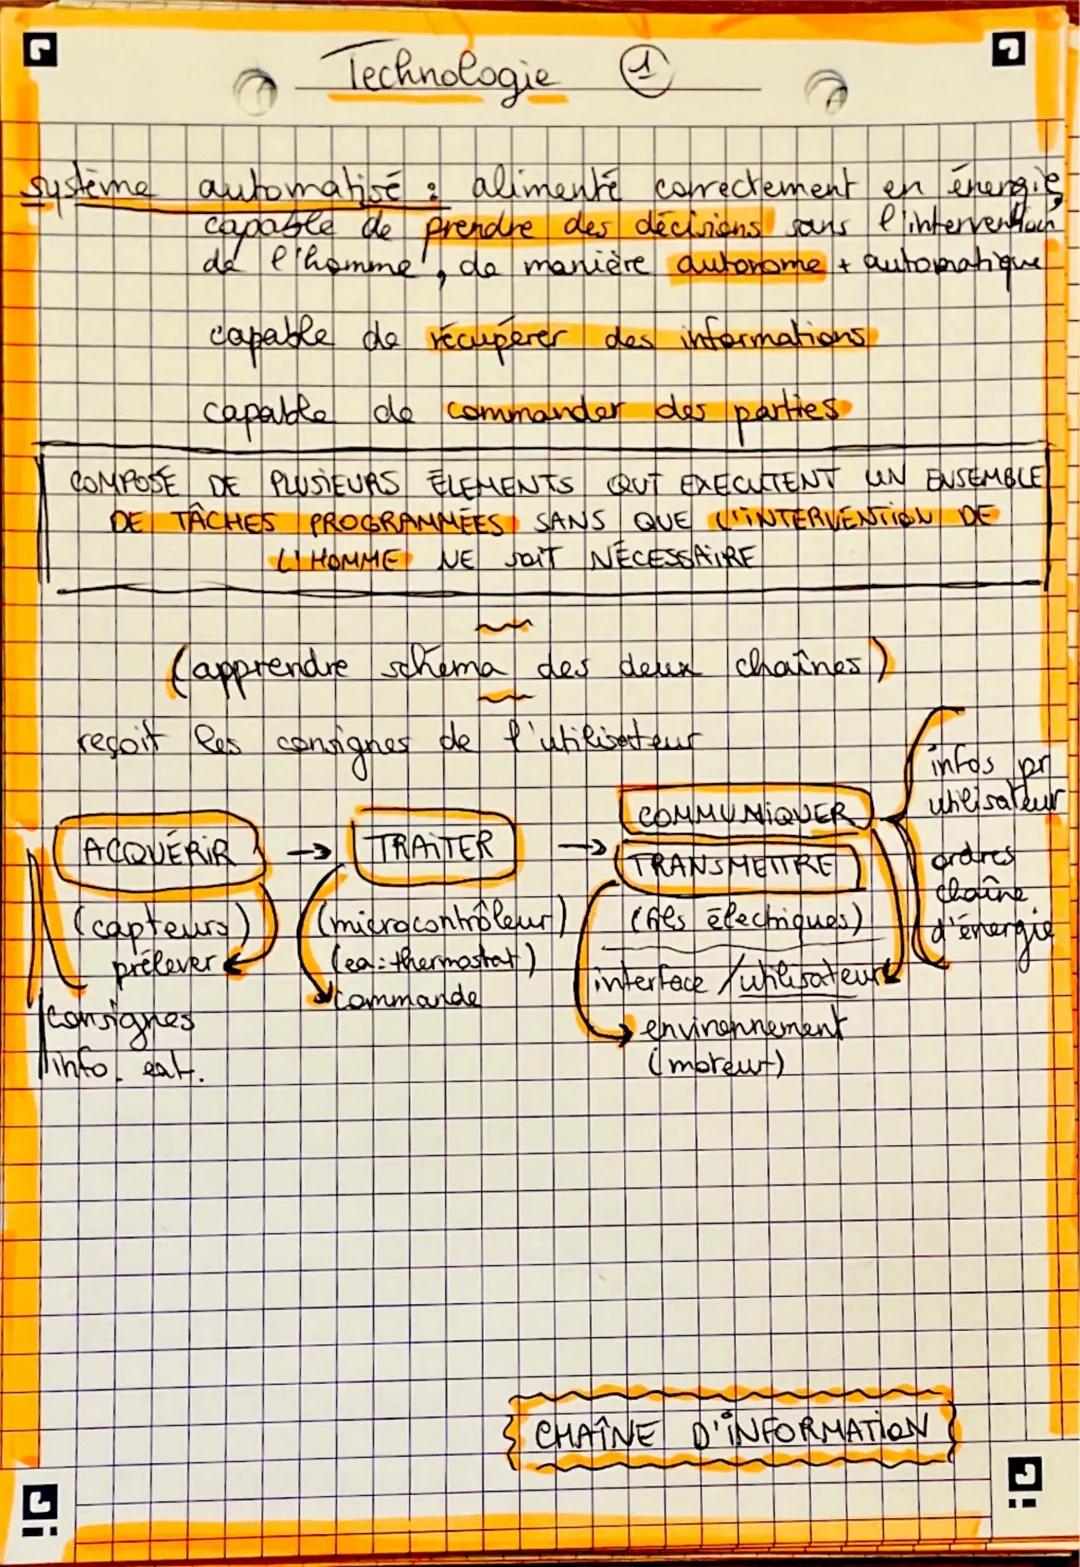 Technologie 1
système automatisé : alimenté correctement en énergie,
capable de prendre des décisions sans l'intervention
de l'homme, de manière autonome + automatique
capable de récupérer des informations
capable de commander des parties
COMPOSÉ DE PLUSIEURS ÉLEMENTS QUI EXECUTENT UN ENSEMBLE
DE TÂCHES PROGRAMMÉES SANS QUE L'INTERVENTION DE
L'HOMME NE SOIT NÉCESSAIRE
(apprendre schéma des deux chaînes)
reçoit les consignes de l'utilisateur
ACQUÉRIR → TRAITER → COMMUNIQUER
TRANSMETTRE
infos pr
utilisateur
ordres
chaîne
d'énergie
(capteurs)
prélever
consignes
info. ext.
(microcontrôleur)
(ex: thermostat)
commande
(fils électriques)
interface / utilisateur
environnement
(moteur)
CHAÎNE D'INFORMATION